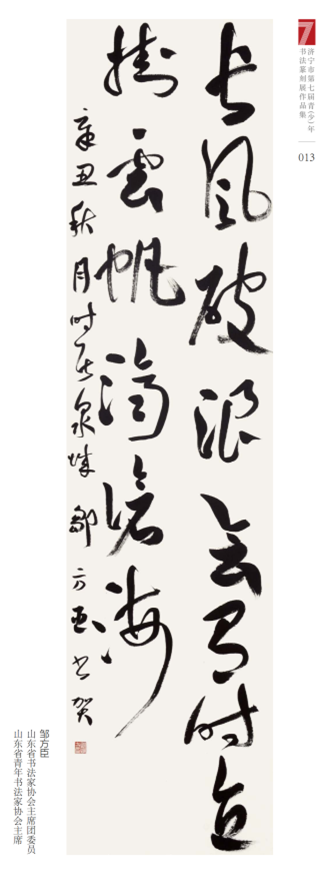 7
济宁市第七届青（少）年
书法篆刻展作品集
013
长风破浪会有时直
掛雲帆济滄海
辛丑秋月时居泉城 鄒方臣书贺
邹方臣
山东省书法家协会主席团委员
山东省青年书法家协会主席